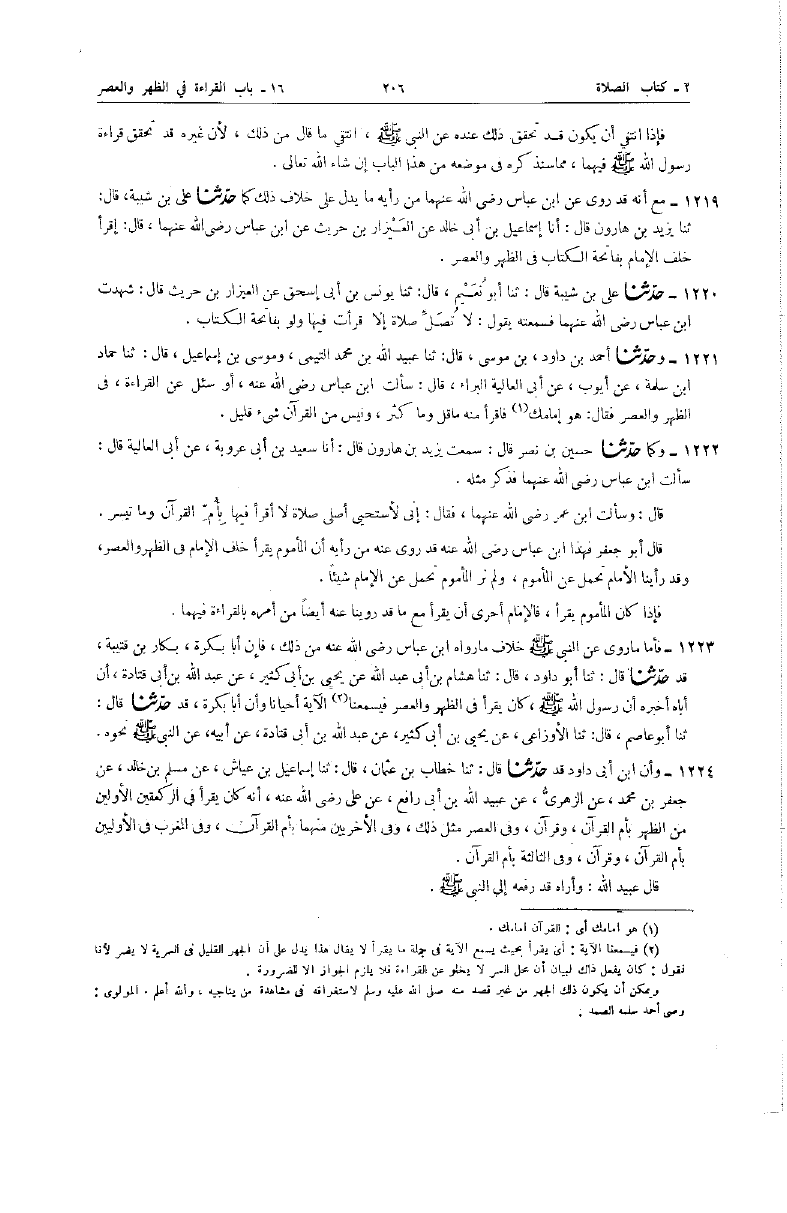 ٢ ـ كتاب الصلاة ٢٠٦ ١٦ ـ باب القراءة في الظهر والعصر
فإذا انتفي أن يكون قد تحقق ذلك عنده عن النبي ﷺ ، انتفي ما قال من ذلك ، لأن غيره قد تحقق قراءة
رسول الله ﷺ فيهما ، مماسنذكره في موضعه من هذا الباب إن شاء الله تعالى .
١٢١٩ ـ مع أنه قد روى عن ابن عباس رضى الله عنهما من رأيه ما يدل على خلاف ذلك كما حدّثنا على بن شيبة، قال:
ثنا يزيد بن هارون قال : أنا إسماعيل بن أبى خالد عن العَيْزار بن حريث عن ابن عباس رضى الله عنهما ، قال: إقرأ
خلف الإمام بفاتحة الكتاب فى الظهر والعصر .
١٢٢٠ ـ حدّثنا على بن شيبة قال : ثنا أبو نُعَيْم ، قال: ثنا يونس بن أبى إسحق عن العيزار بن حريث قال : شهدت
ابن عباس رضى الله عنهما فسمعته يقول : لا تُصَلِّ صلاة إلا قرأت فيها ولو بفاتحة الكتاب .
١٢٢١ ـ وحدّثنا أحمد بن داود ، بن موسى ، قال: ثنا عبيد الله بن محمد التيمى ، وموسى بن إسماعيل ، قال : ثنا حماد
ابن سلمة ، عن أيوب ، عن أبى العالية البراء ، قال : سألت ابن عباس رضى الله عنه ، أو سئل عن القراءة ، فى
الظهر والعصر فقال: هو إمامك(١) فاقرأ منه ماقل وما كثر ، وليس من القرآن شىء قليل .
١٢٢٢ ـ وكما حدّثنا حسين بن نصر قال : سمعت يزيد بن هارون قال : أنا سعيد بن أبى عروبة ، عن أبى العالية قال :
سألت ابن عباس رضى الله عنهما فذكر مثله .
قال : وسألت ابن عمر رضى الله عنهما ، فقال : إنى لأستحيى أصلى صلاة لا أقرأ فيها بِأُمِّ القرآن وما تيسر .
قال أبو جعفر فهذا ابن عباس رضى الله عنه قد روى عنه من رأيه أن المأموم يقرأ خلف الإمام فى الظهروالعصر،
وقد رأينا الأمام تحمل عن المأموم ، ولم نر المأموم تحمل عن الإمام شيئاً .
فإذا كان المأموم يقرأ ، فالإمام أحرى أن يقرأ مع ما قد روينا عنه أيضاً من أمره بالقراءة فيهما .
١٢٢٣ ـ فأما ماروى عن النبي ﷺ خلاف مارواه ابن عباس رضى الله عنه من ذلك ، فإن أبا بكرة ، بكار بن قتيبة ،
قد حدّثنا قال : ثنا أبو داود ، قال : ثنا هشام بن أبى عبد الله عن يحيى بن أبى كثير ، عن عبد الله بن أبى قتادة ، أن
أباه أخبره أن رسول الله ﷺ ، كان يقرأ فى الظهر والعصر فيسمعنا(٢) الآية أحيانا وأن أبا بكرة ، قد حدّثنا قال :
ثنا أبوعاصم ، قال: ثنا الأوزاعى ، عن يحيى بن أبى كثير، عن عبد الله بن أبى قتادة ، عن أبيه، عن النبي ﷺ نحوه .
١٢٢٤ ـ وأن ابن أبى داود قد حدّثنا قال : ثنا خطاب بن عثمان ، قال : ثنا إسماعيل بن عياش ، عن مسلم بن خالد ، عن
جعفر بن محمد ، عن الزهرى ، عن عبيد الله بن أبى رافع ، عن على رضى الله عنه ، أنه كان يقرأ فى الركعتين الأولين
من الظهر بأم القرآن ، وقرآن ، وفى العصر مثل ذلك ، وفى الأخريين منهما بأم القرآن ، وفى المغرب فى الأوليين
بأم القرآن ، وقرآن ، وفى الثالثة بأم القرآن .
قال عبيد الله : وأراه قد رفعه إلى النبي ﷺ .
(١) هو امامك أى : القرآن امامك .
(٢) فيسمعنا الآية : أى يقرأ بحيث يسمع الآية فى جملة ما يقرأ لا يقال هذا يدل على أن الجهر القليل فى السرية لا يضر لأنا
نقول : كان يفعل ذلك لبيان أن محل السر لا يخلو عن القراءة فلا يلزم الجواز الا للضرورة .
ويمكن أن يكون ذلك الجهر من غير قصد منه صلى الله عليه وسلم لاستغراقه فى مشاهدة من يناجيه ، والله أعلم . المولوى :
وصى أحمد سلمه الصمد :